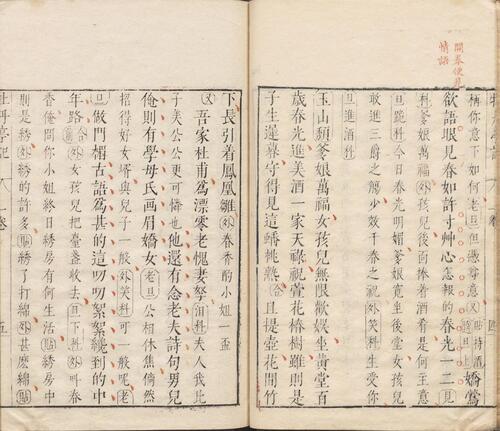 開卷便見
情語
柄你意下如何老旦但憑尊意又
欲語眼見春如許寸艸心怎報的春光一二見
科爹娘萬福外孩兒後面捧著酒肴是何主意
旦跪科今日春光明媚爹娘寬坐後堂女孩兒
敢進三爵之觴少效千春之祝外笑科生受你
旦進酒科
玉山頹爹娘萬福女孩兒無限歡娛坐黃堂百
歲春光進美酒一家天祿祝萱花椿樹雖則是
子生遲暮守得見這蟠桃熟合且提壺花間竹
下長引着鳳凰雛外春香酌小姐一盃
又吾家杜甫爲漂零老愧妻孥淚科夫人我比
子美公公更可憐也他還有念老夫詩句男兒
俺則有學母氏画眉嬌女老旦公相休焦倘然
招得好女壻與兒子一般外笑科可一般呢老
旦做門楣古語爲甚的這叨叨絮絮纔到的中
年路合前外女孩兒把臺盞收去旦下科外叫春
香俺問你小姐終日綉房有何生活貼綉房中
則是綉外綉的許多貼綉了打綿外甚麽綿貼